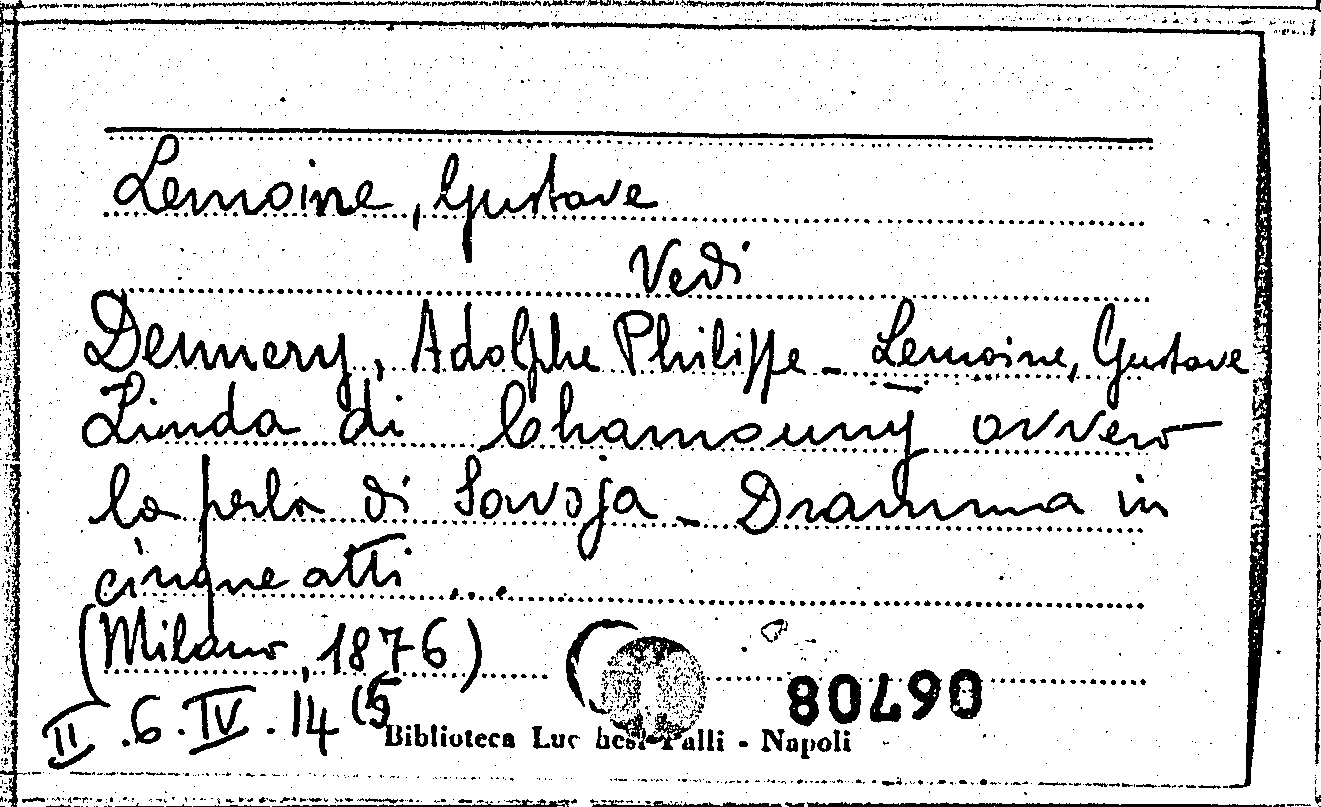 Lemoine, Gustave
Vedi
Dennery, Adolphe Philippe - Lemoine, Gustave
Linda di Chamouny ovvero
la perla di Savoja - Dramma in
cinque atti ...
(Milano, 1876)
80490
II. 6. IV. 14 (5
Biblioteca Lucchesi-Palli - Napoli